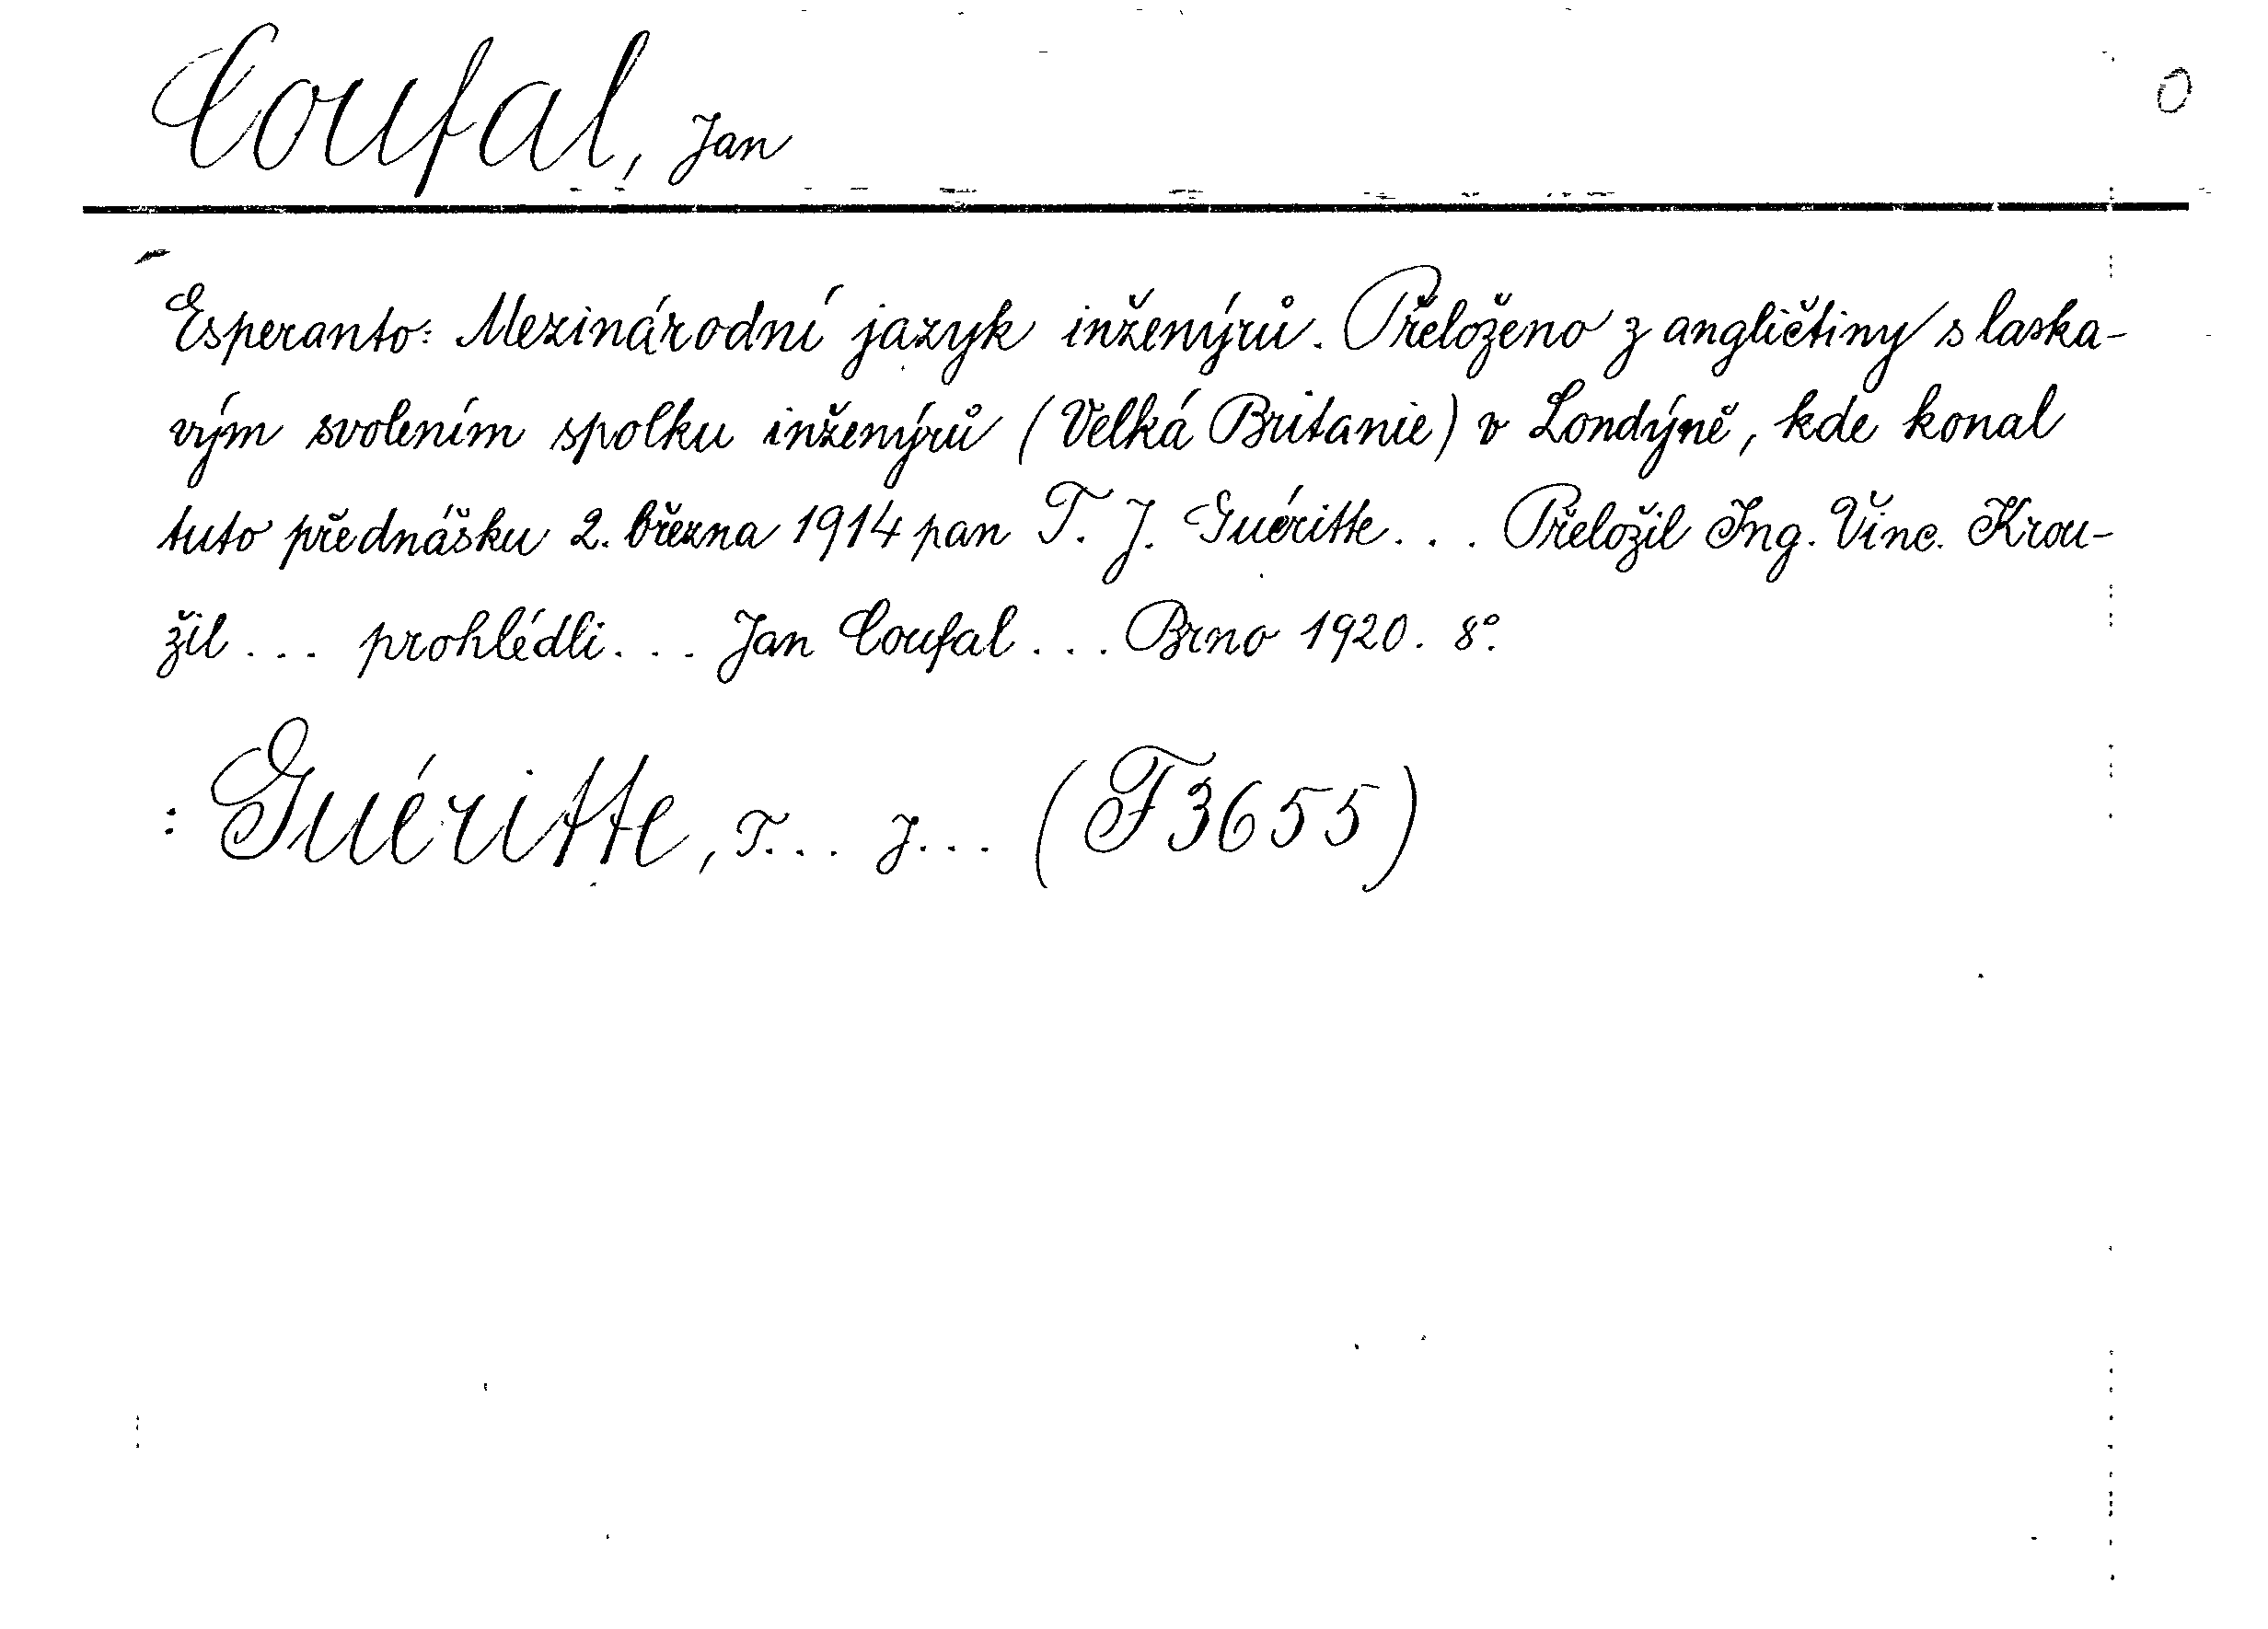 Coufal, Jan
0
Esperanto: Mezinárodní jazyk inženýrů. Přeloženo z angličtiny s laska-
vým svolením spolku inženýrů (Velká Britanie) v Londýně, kde konal
tuto přednášku 2. března 1914 pan T. J. Guéritte... Přeložil Ing. Vinc. Krou-
žil... prohlédli... Jan Coufal... Brno 1920. 8°.
: Guéritte, T... J... (F3655)